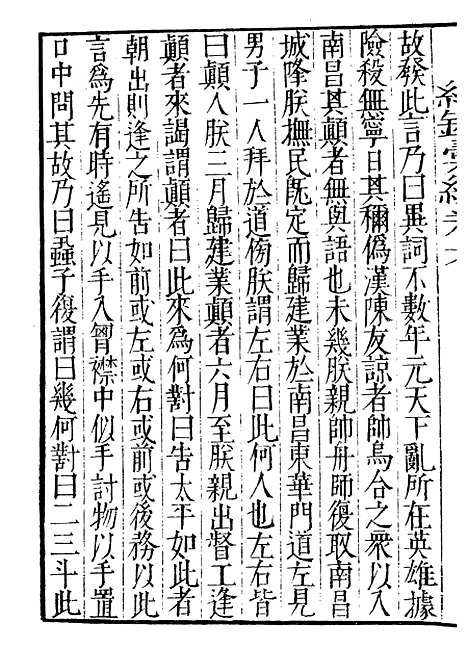 故發此言乃曰異詞不數年元天下亂所在英雄據
險殺無寧日其稱偽漢陳友諒者帥烏合之衆以入
南昌其顛者無與語也未幾朕親帥舟師復取南昌
城降朕撫民旣定而歸建業於南昌東華門道左見
男子一人拜於道傍朕謂左右曰此何人也左右皆
曰顛人朕三月歸建業顛者六月至朕親出督工逢
顛者來謁謂顛者曰此來爲何對曰告太平如此者
朝出則逢之所告如前或左或右或前或後務以此
言爲先有時遙見以手入胷襟中似手討物以手置
口中問其故乃曰蝨子復謂曰幾何對曰二三斗此